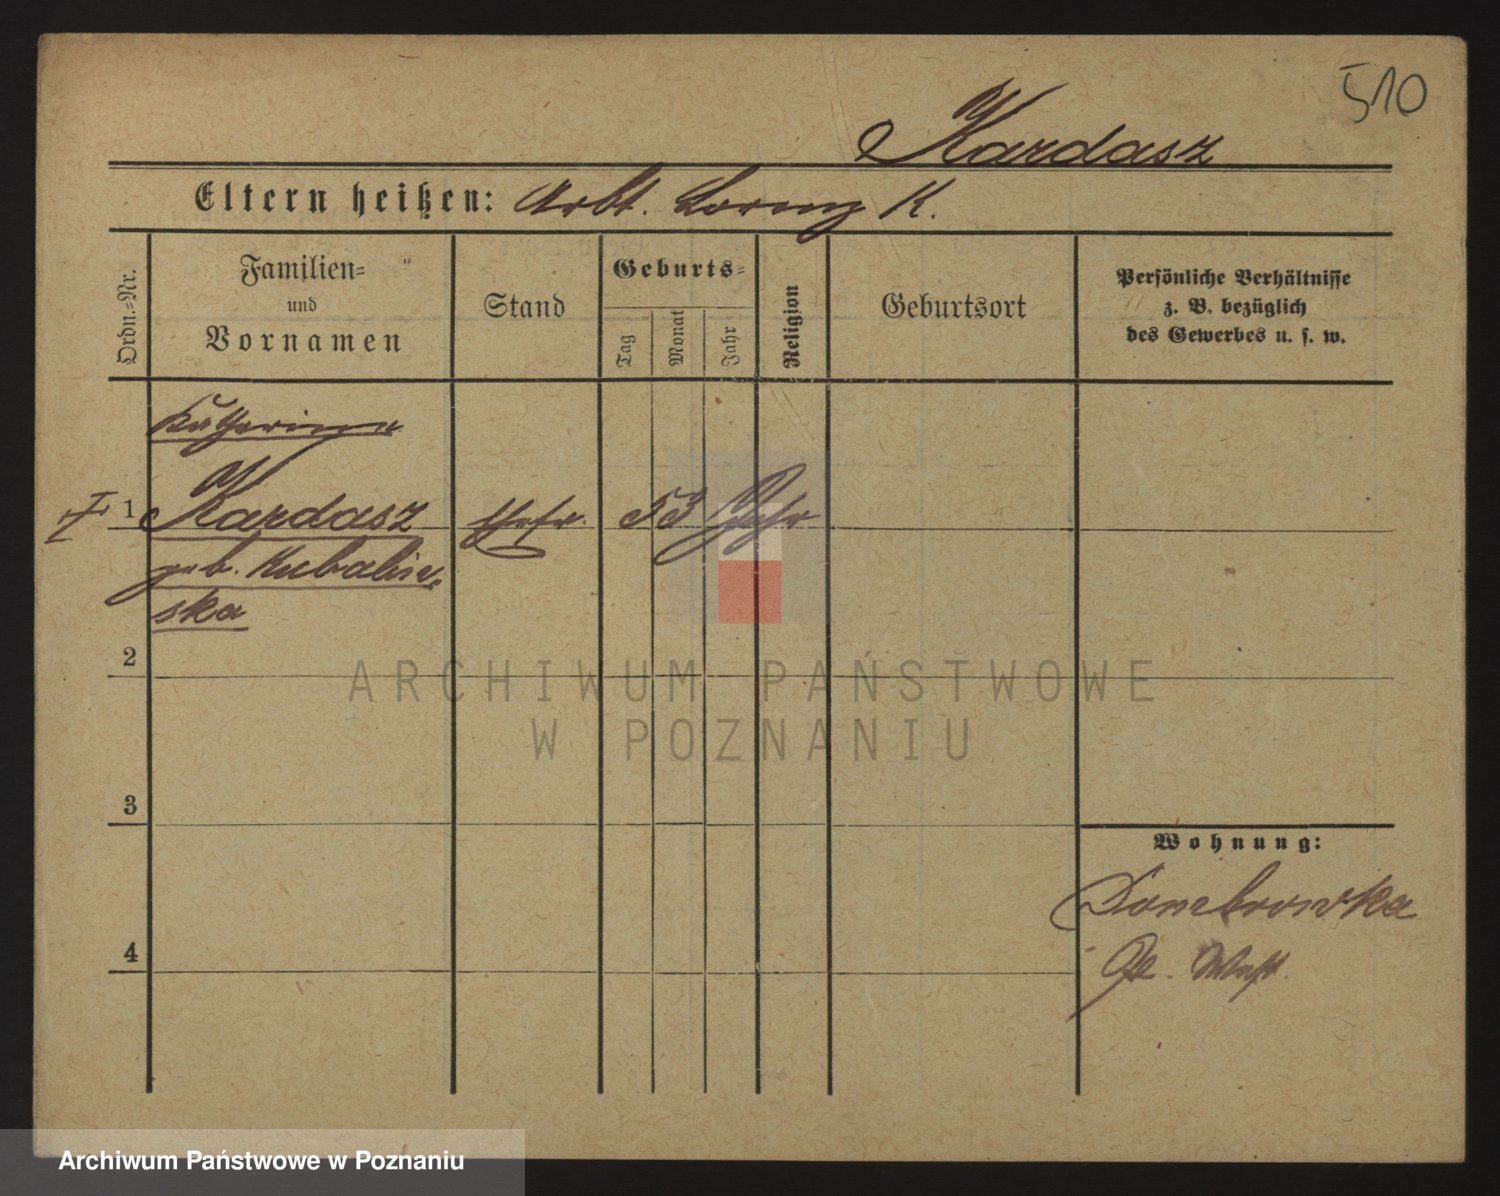 510
Kardasz
Eltern heißen: Arbt. Lorenz K.
Ordn.=Nr.
Familien=
und
Vornamen
Stand
Geburts=
Tag
Monat
Jahr
Religion
Geburtsort
Persönliche Verhältnisse
z. B. bezüglich
des Gewerbes u. s. w.
Katharina
1 Kardasz Ehefr. 53 Jahr
geb.
ska
2
ARCHIWUM PAŃSTWOWE
W POZNANIU
3
Wohnung:
Dombrowka
4
Archiwum Państwowe w Poznaniu